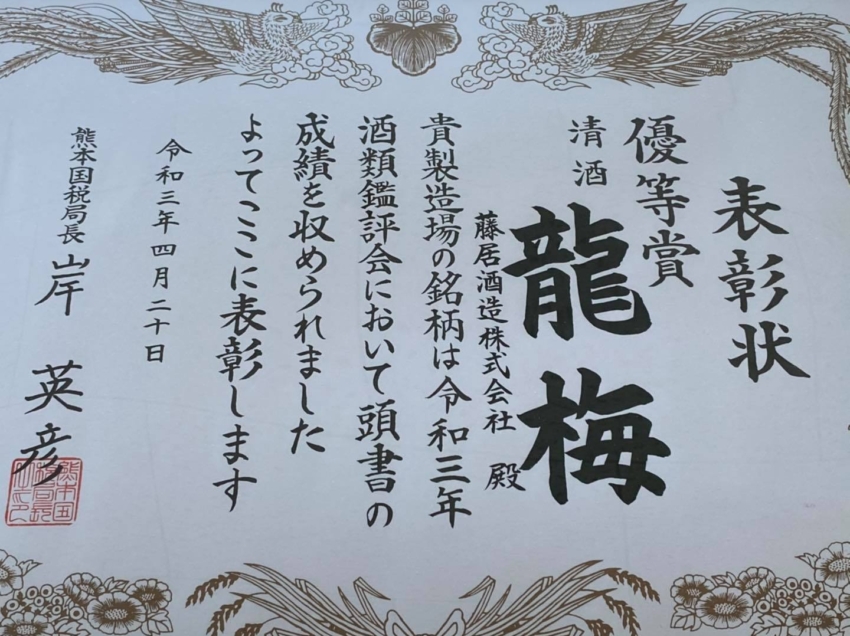 表彰状
優等賞
清酒
龍梅
藤居酒造株式会社 殿
貴製造場の銘柄は令和三年
酒類鑑評会において頭書の
成績を収められました
よってここに表彰します
令和三年四月二十日
熊本国税局長 岸 英彦